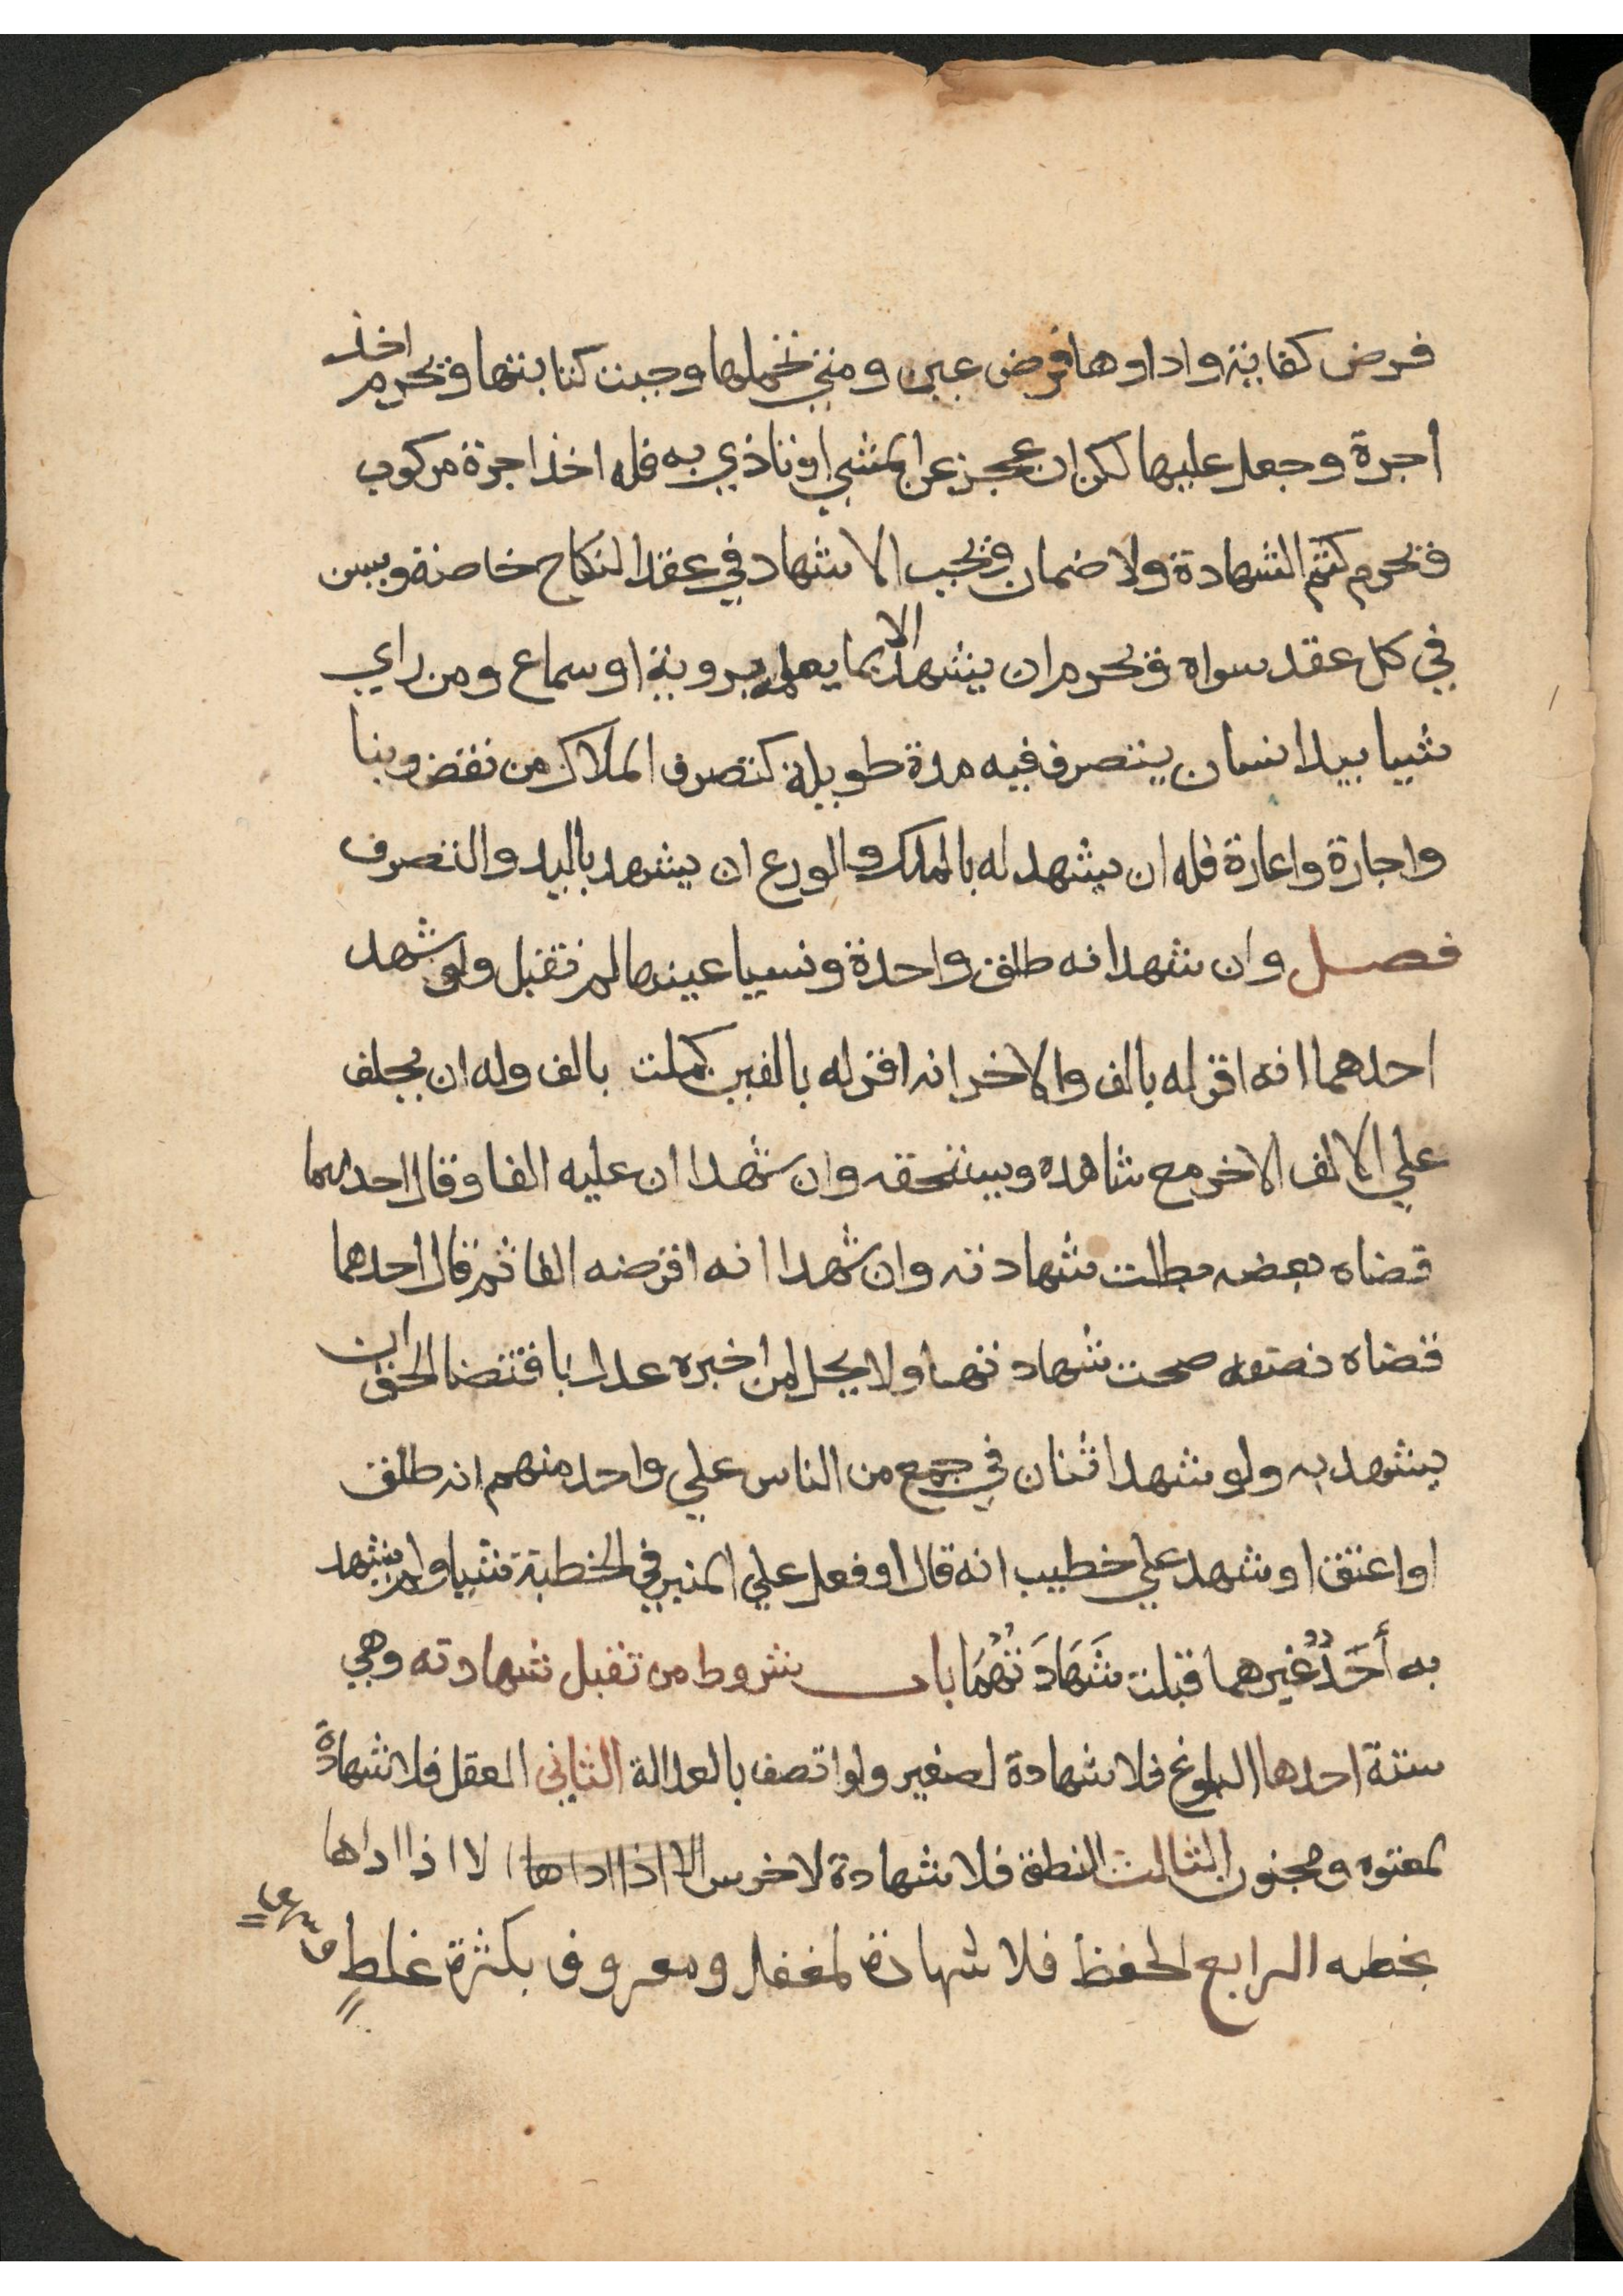 فرض كفاية واداوها فرض عين ومتي تحملها وجبت كتابتها ويحرم اخذ
اجرة وجعل عليها لكن ان عجز عن المشي او تاذي به فله اخذ اجرة مركوب
ويحرم كتم الشهادة ولا ضمان ويجب الاشهاد في عقد النكاح خاصة ويسن
في كل عقد سواه ويحرم ان يشهد الا بما يعلمه بروية او سماع ومن راي
شيا بيد انسان يتصرف فيه مدة طويلة كتصرف الملاك من نقض وبنا
واجارة واعارة فله ان يشهد له بالملك والورع ان يشهد باليد والتصرف
فصل وان شهدا انه طلق واحدة ونسيا عينها لم تقبل ولو شهد
احدهما انه اقر له بالف والاخر انه اقر له بالفين كملت بالف وله ان يحلف
علي الالف الاخر مع شاهده ويستحقه وان شهدا ان عليه الفا وقال احدهما
قضاه بعضه بطلت شهادته وان شهدا انه اقرضه الفا ثم قال احدهما
قضاه نصفه صحت شهادتهما ولا يحل لمن اخبره عدل باقتضا الحق ان
يشهد به ولو شهد اثنان في جمع من الناس علي واحد منهم انه طلق
او اعتق او شهد علي خطيب انه قال او فعل علي المنبر في الخطبة شيا ولم يشهد
به أَحَدٌ غيرهما قبلت شَهَادَتُهُمَا باب شروط من تقبل شهادته وهي
ستة احدها البلوغ فلا شهادة لصغير ولو اتصف بالعدالة الثاني العقل فلا شهادة
لمعتوه ومجنون الثالث النطق فلا شهادة لاخرس الا اذا اداها الا اذا اداها
بخطه الرابع الحفظ فلا شهادة لمغفل ومعروف بكثرة غلطٍ